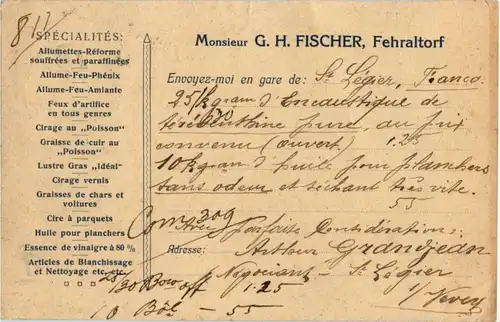 8/V
SPÉCIALITÉS:
Allumettes-Réforme
souffrées et paraffinées
Allume-Feu-Phénix
Allume-Feu-Amiante
Feux d'artifice
en tous genres
Cirage au „Poisson"
Graisse de cuir au
„Poisson"
Lustre Gras „Idéal"
Cirage vernis
Graisses de chars et
voitures
Cire à parquets
Huile pour planchers
Essence de vinaigre à 80 %
Articles de Blanchissage
et Nettoyage etc. etc.
Monsieur G. H. FISCHER, Fehraltorf
Envoyez-moi en gare de: St Légier, Franco
25 kgram d'Encaustique de
térébenthine pure, au prix
convenu (ouvert) 1.25
10 kgram d'huile pour planchers
sans odeur et séchant très vite.
55
309
Avec parfaite Considération:
Adresse: Arthur Grandjean
Négociant - St Légier
s/ Vevey
1.25
10 - 55